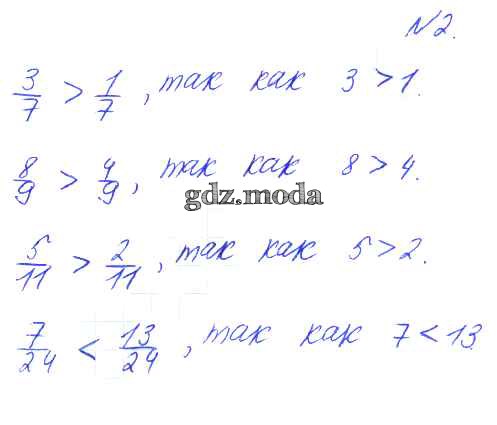 №2.
3/7 > 1/7, так как 3 > 1.
8/9 > 4/9, так как 8 > 4.
gdz.moda
5/11 > 2/11, так как 5 > 2.
7/24 < 13/24, так как 7 < 13.